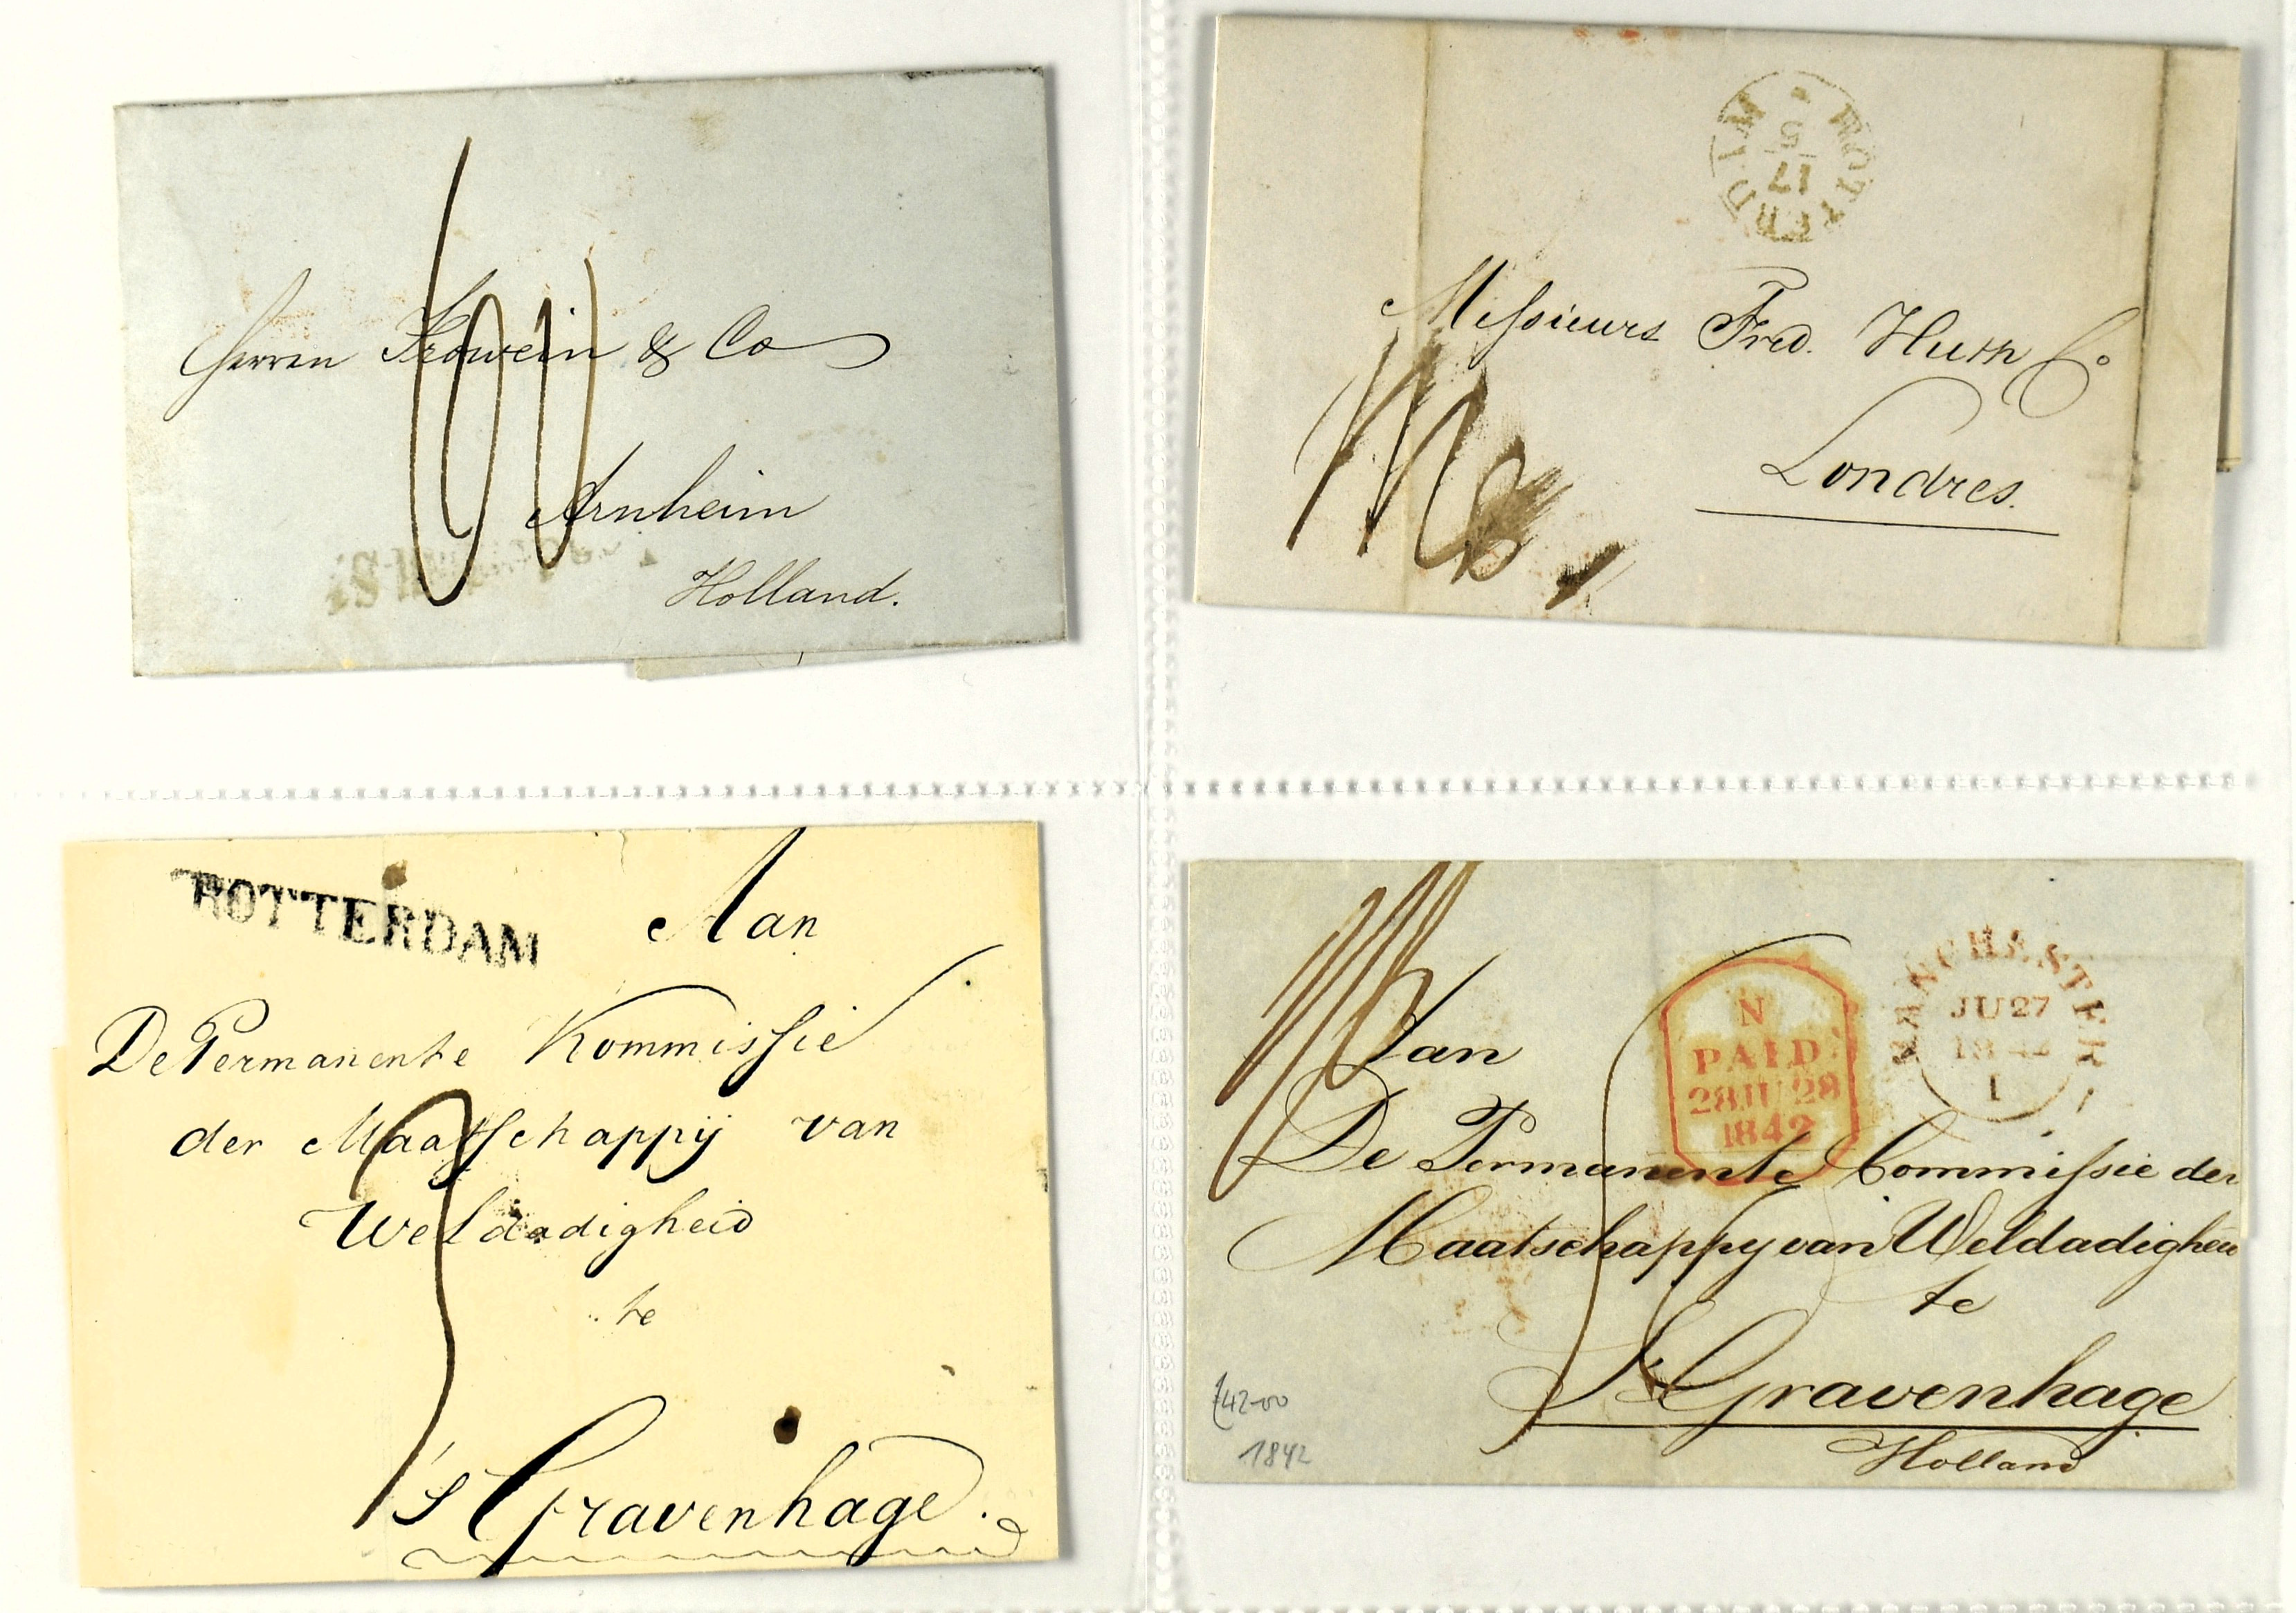 Herren Frowein & Co
Arnheim
Holland.
ROTTERDAM
17
5
Messieurs Fred. Huth Co
Londres.
ROTTERDAM
Aan
De Permanente Kommissie
der Maatschappij van
Weldadigheid
te
's Gravenhage.
N
PAID
28 JU 28
1842
MANCHESTER
JU 27
1842
1
Aan
De Permanente Commissie der
Maatschappy van Weldadigheid
te
's Gravenhage
Holland
42-00
1842